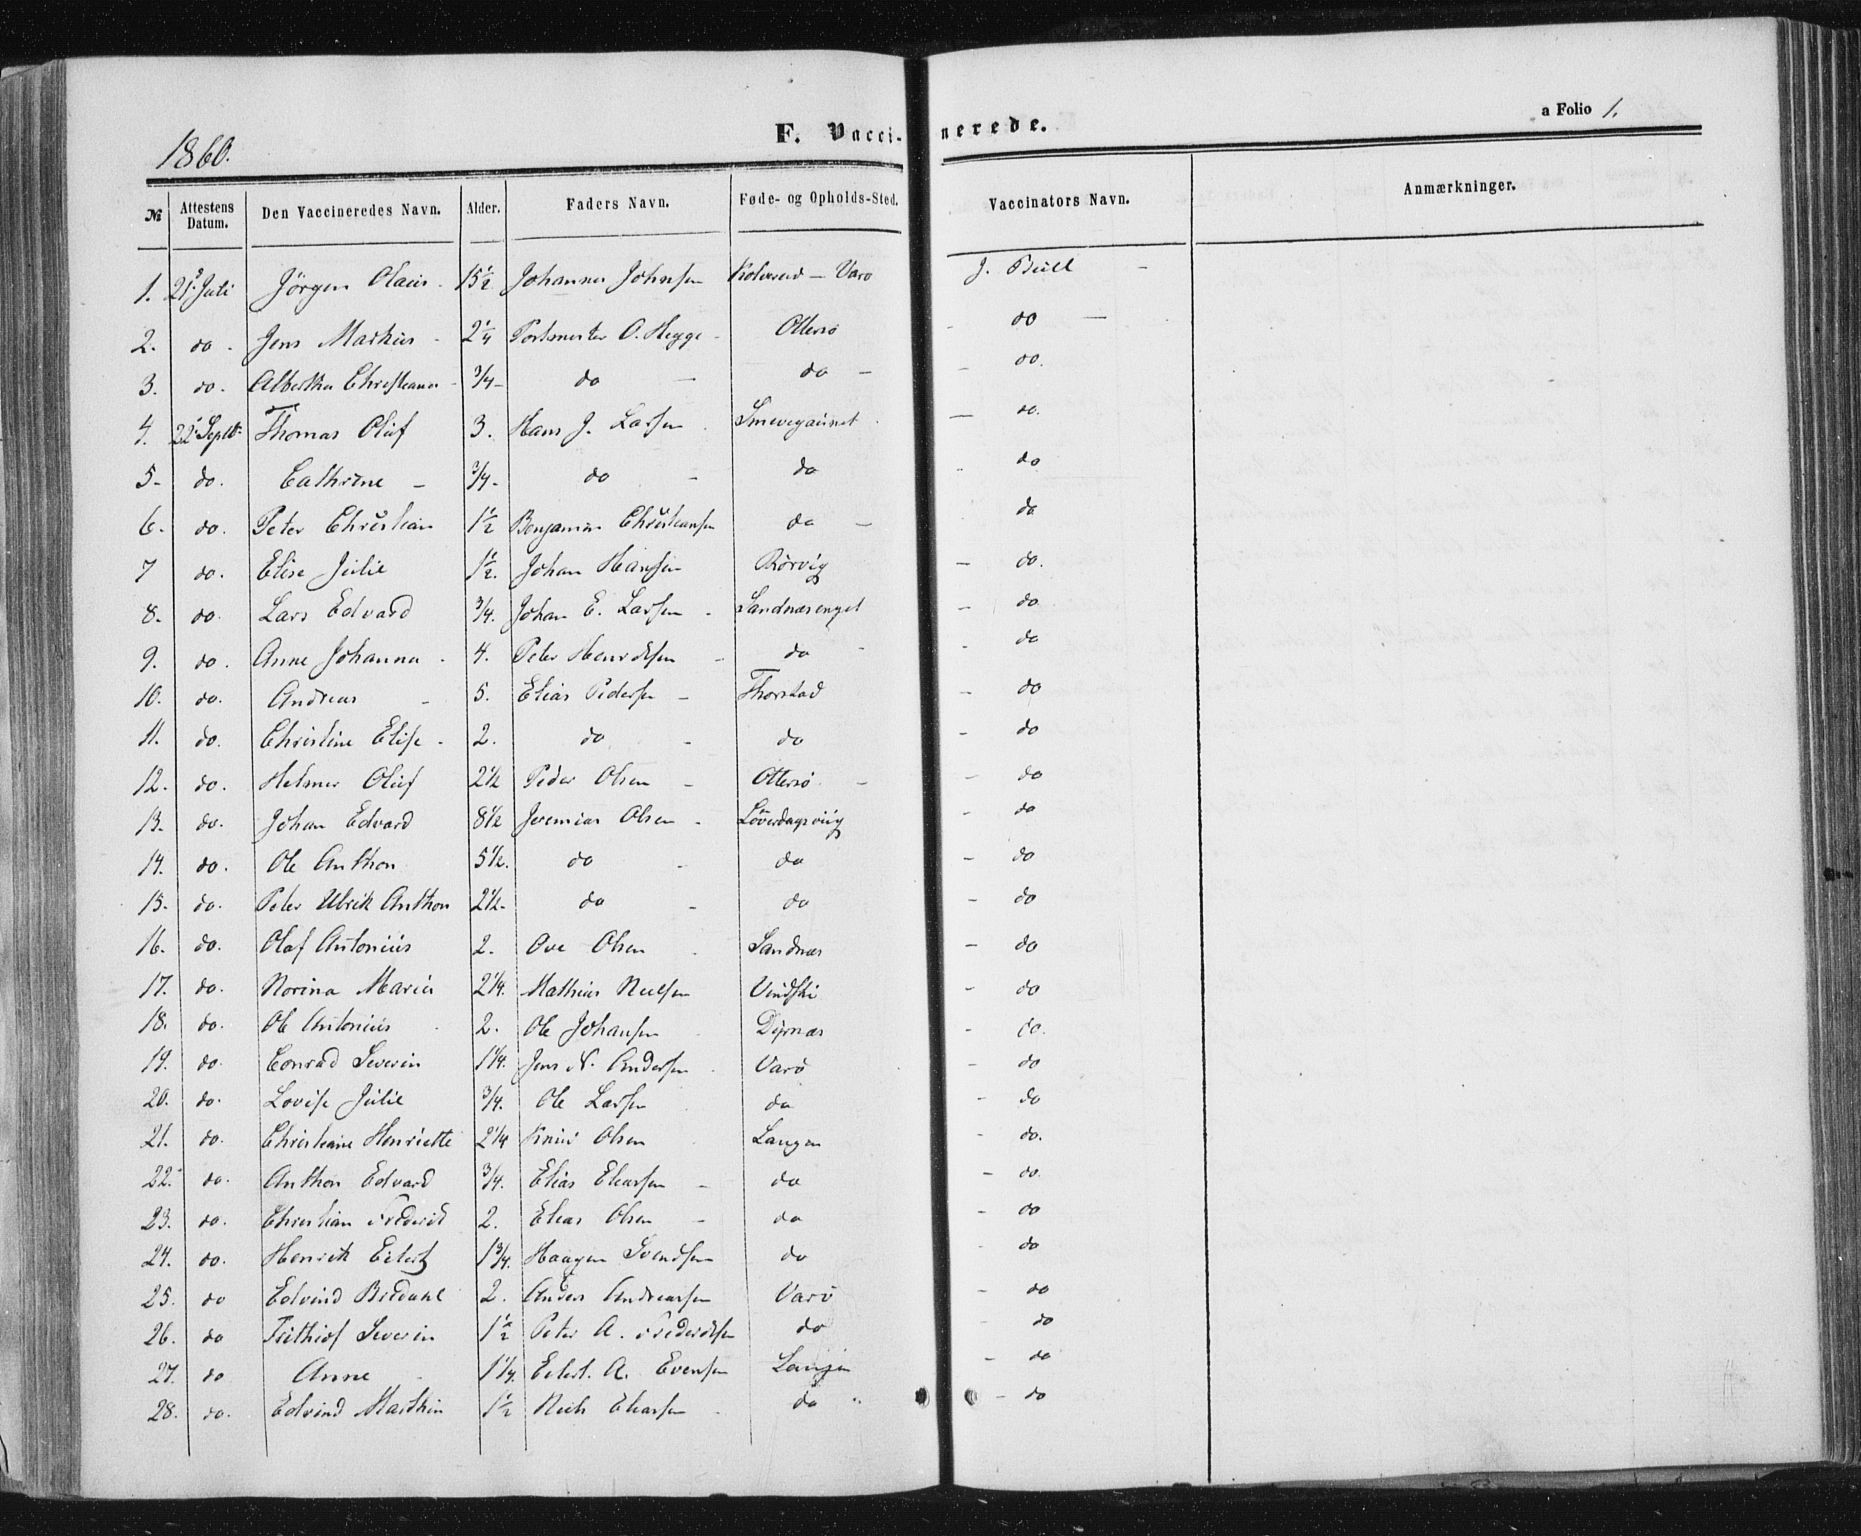 1860.
F. Vacci-nerede.
a Folio 1.
№ Attestens Datum. Den Vaccineredes Navn. Alder. Faders Navn. Føde- og Opholds-Sted. Vaccinators Navn. Anmærkninger.
1. 21 Juli Jörgen Olaus 15½ Johannes Johnsen Kolvereid - Varø J. Bull
2. do Jens Markus 2¼ O. Hegge Ottersø do
3. do. Christiana ¾ do do do.
4. 22 Septbr Thomas Oluf 3. Hans J. Larsen do.
5. do. Cathrine ¾ do do do
6. do. Peter Christian 1½ Benjamin Christiansen do do
7 do. Elise Julie 1½. Johan Hansen Rörvig do.
8. do. Lars Edvard ¾. Johan E. Larsen Sandnæsenget do
9. do. Anne Johanna 4. Peter Henriksen do do
10. do. Andreas 5. Elias Pedersen Thorstad do
11. do. Christine Elise 2. do do do
12. do. Helmer Oluf 2½ Peder Olsen Ottersø do
13. do. Johan Edvard 8½ Jeremias Olsen do
14. do. Ole Anthon 5½. do do do
15. do. Peter Ulrik Anthon 2½ do do do
16. do. Olaf Antonius 2. Ove Olsen Sandnæs do
17. do. Norina Maria 2¼. Mathias Neelsen do
18. do. Ole Antonius 2. Ole Johansen do.
19. do. Conrad Severin 1¼. Jens N. Andersen Varø do
20. do. Lovise Julie ¾. Ole Larsen do do
21. do. Christiane Henriette 2¼ Olsen Langen do.
22. do. Anthon Edvard ¾. Elias Eliassen do do.
23. do. Christian Frederik 2. Elias Olsen do do
24. do. Henrik Eilert 1¾. Haagen Svendsen do do
25. do Edvind Bredahl 2. Anders Andreassen Varø do
26. do Frithiof Severin 1½ Peter A. Frederiksen do do
27. do Anne 1¼. Eilert. A. Evensen Langen do
28. do. Edvind Marthin 1½ Eliassen do do